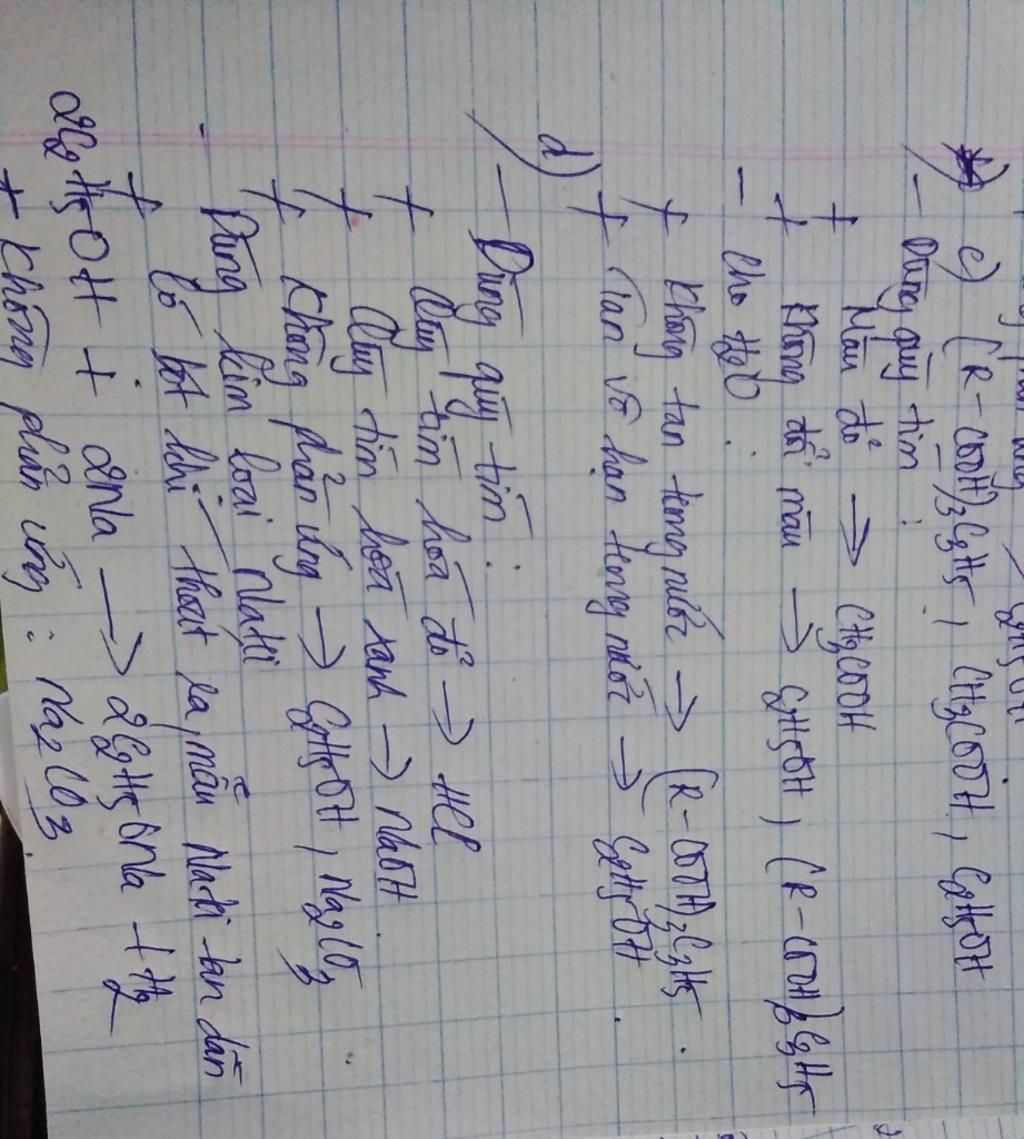 c) (R-COOH)3C3H5, CH3COOH, C2H5OH
- Dùng quỳ tím:
+ Màu đỏ → CH3COOH
+ Không đổi màu → C2H5OH, (R-COOH)3C3H5
- Cho H2O:
+ Không tan trong nước → (R-COOH)3C3H5
+ Tan vô hạn trong nước → C2H5OH
d)
- Dùng quỳ tím:
+ Quỳ tím hóa đỏ → HCl
+ Quỳ tím hóa xanh → NaOH
+ Không phản ứng → C2H5OH, Na2CO3
- Dùng kim loại Natri
+ Có bọt khí thoát ra, mẫu Natri tan dần
2C2H5OH + 2Na → 2C2H5ONa + H2
+ Không phản ứng: Na2CO3